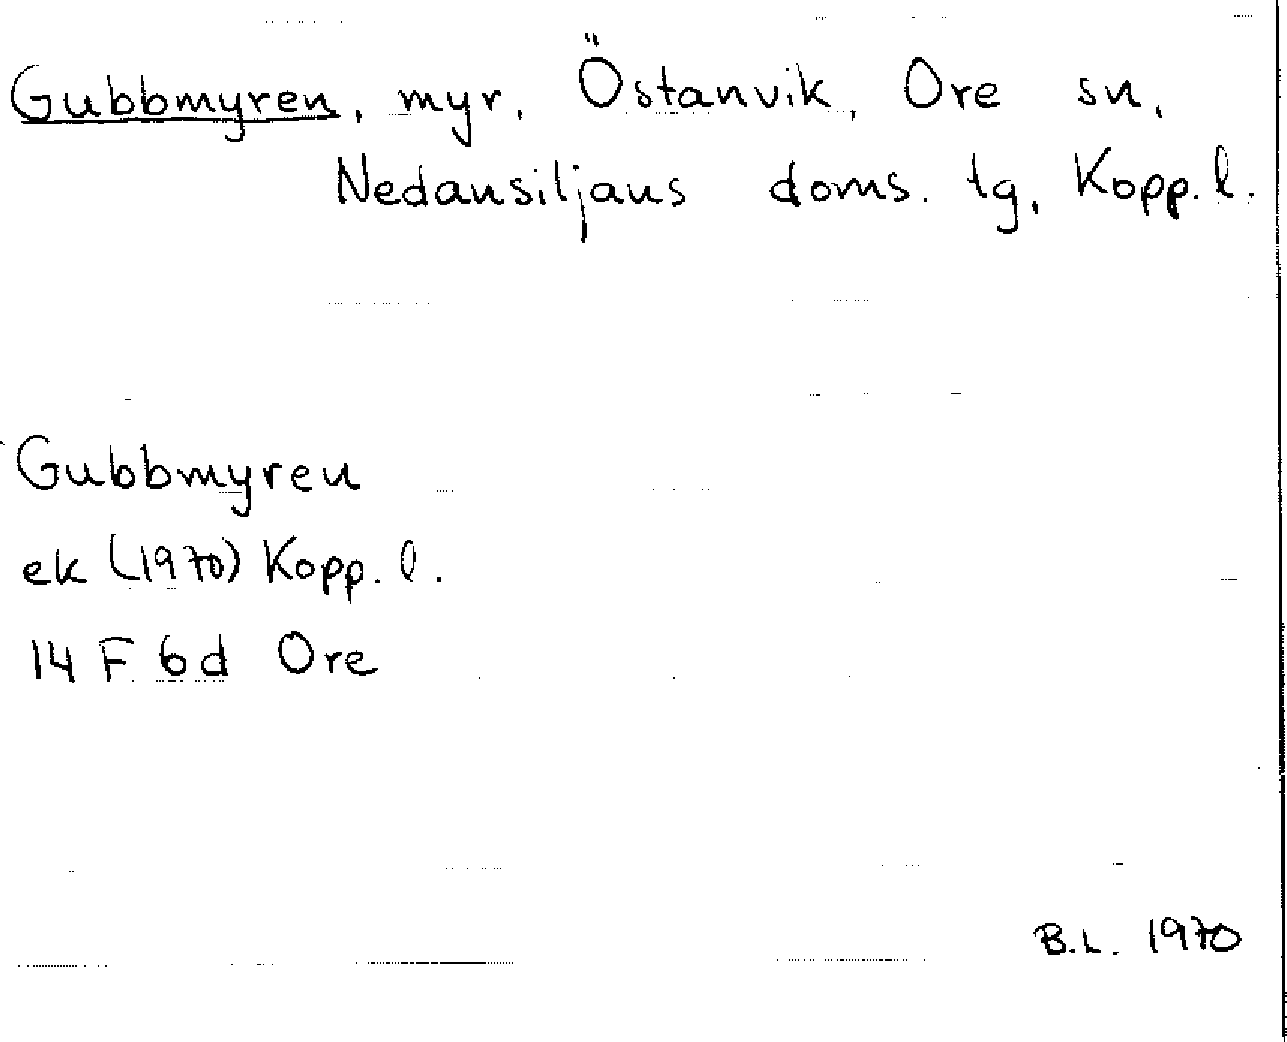 Gubbmyren, myr, Östanvik, Ore sn,
Nedansiljans doms. tg, Kopp. l.
Gubbmyren
ek (1970) Kopp. l.
14 F 6d Ore
B.L. 1970